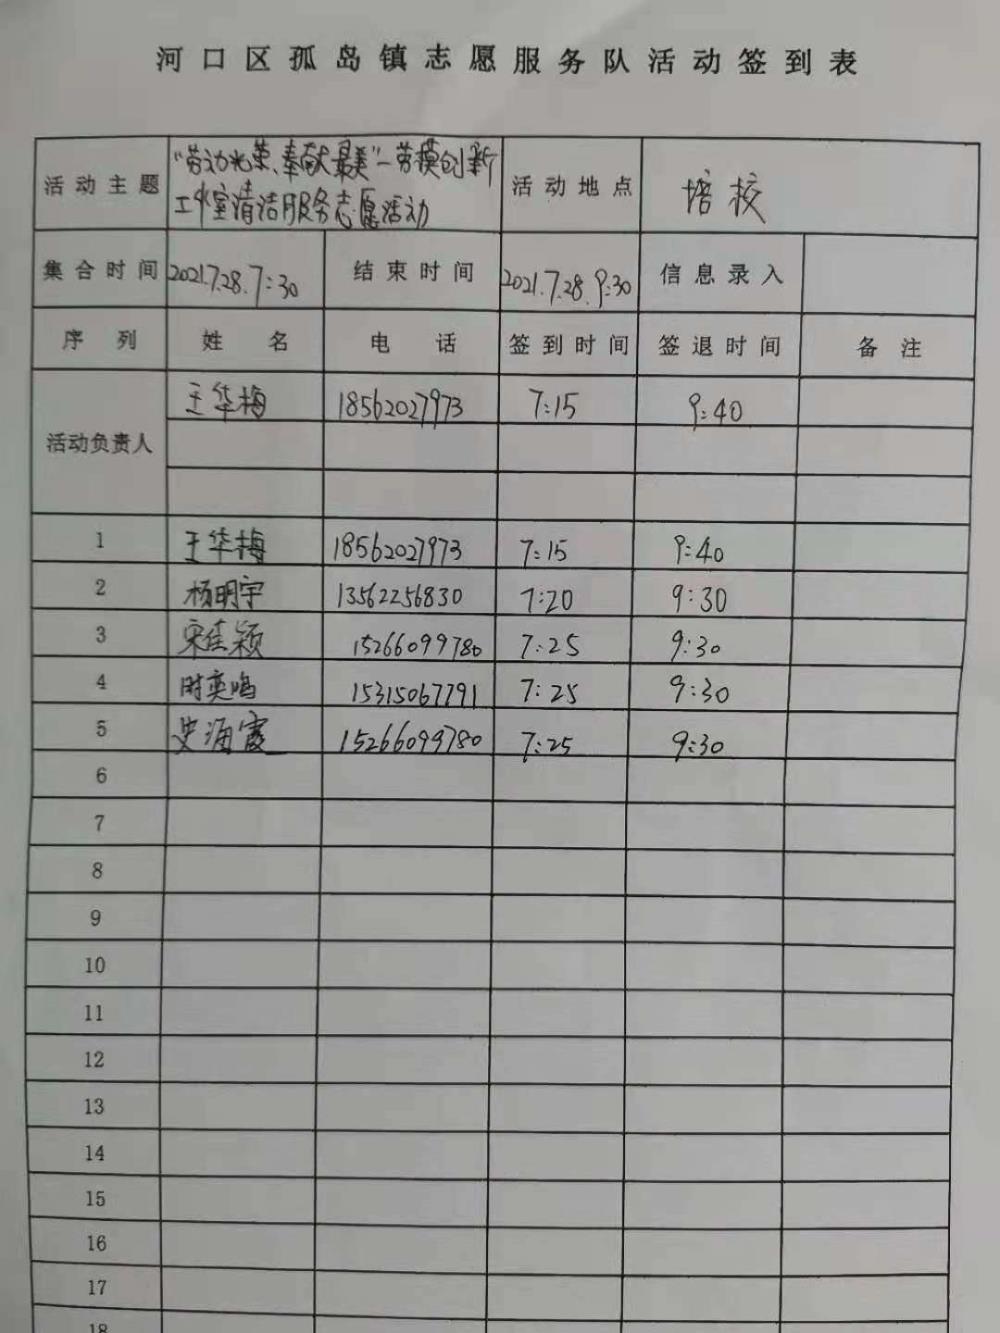 河口区孤岛镇志愿服务队活动签到表
活动主题 "劳动光荣、奉献最美"—劳模创新工作室清洁服务志愿活动 活动地点 培校
集合时间 2021.7.28.7:30 结束时间 2021.7.28.9:30 信息录入
序列 姓名 电话 签到时间 签退时间 备注
活动负责人 王华梅 18562027973 7:15 9:40
1 王华梅 18562027973 7:15 9:40
2 杨明宇 13562256830 7:20 9:30
3 宋佳颖 15266099780 7:25 9:30
4 时奕鸣 15315067791 7:25 9:30
5 史海霞 15266099780 7:25 9:30
6
7
8
9
10
11
12
13
14
15
16
17
18